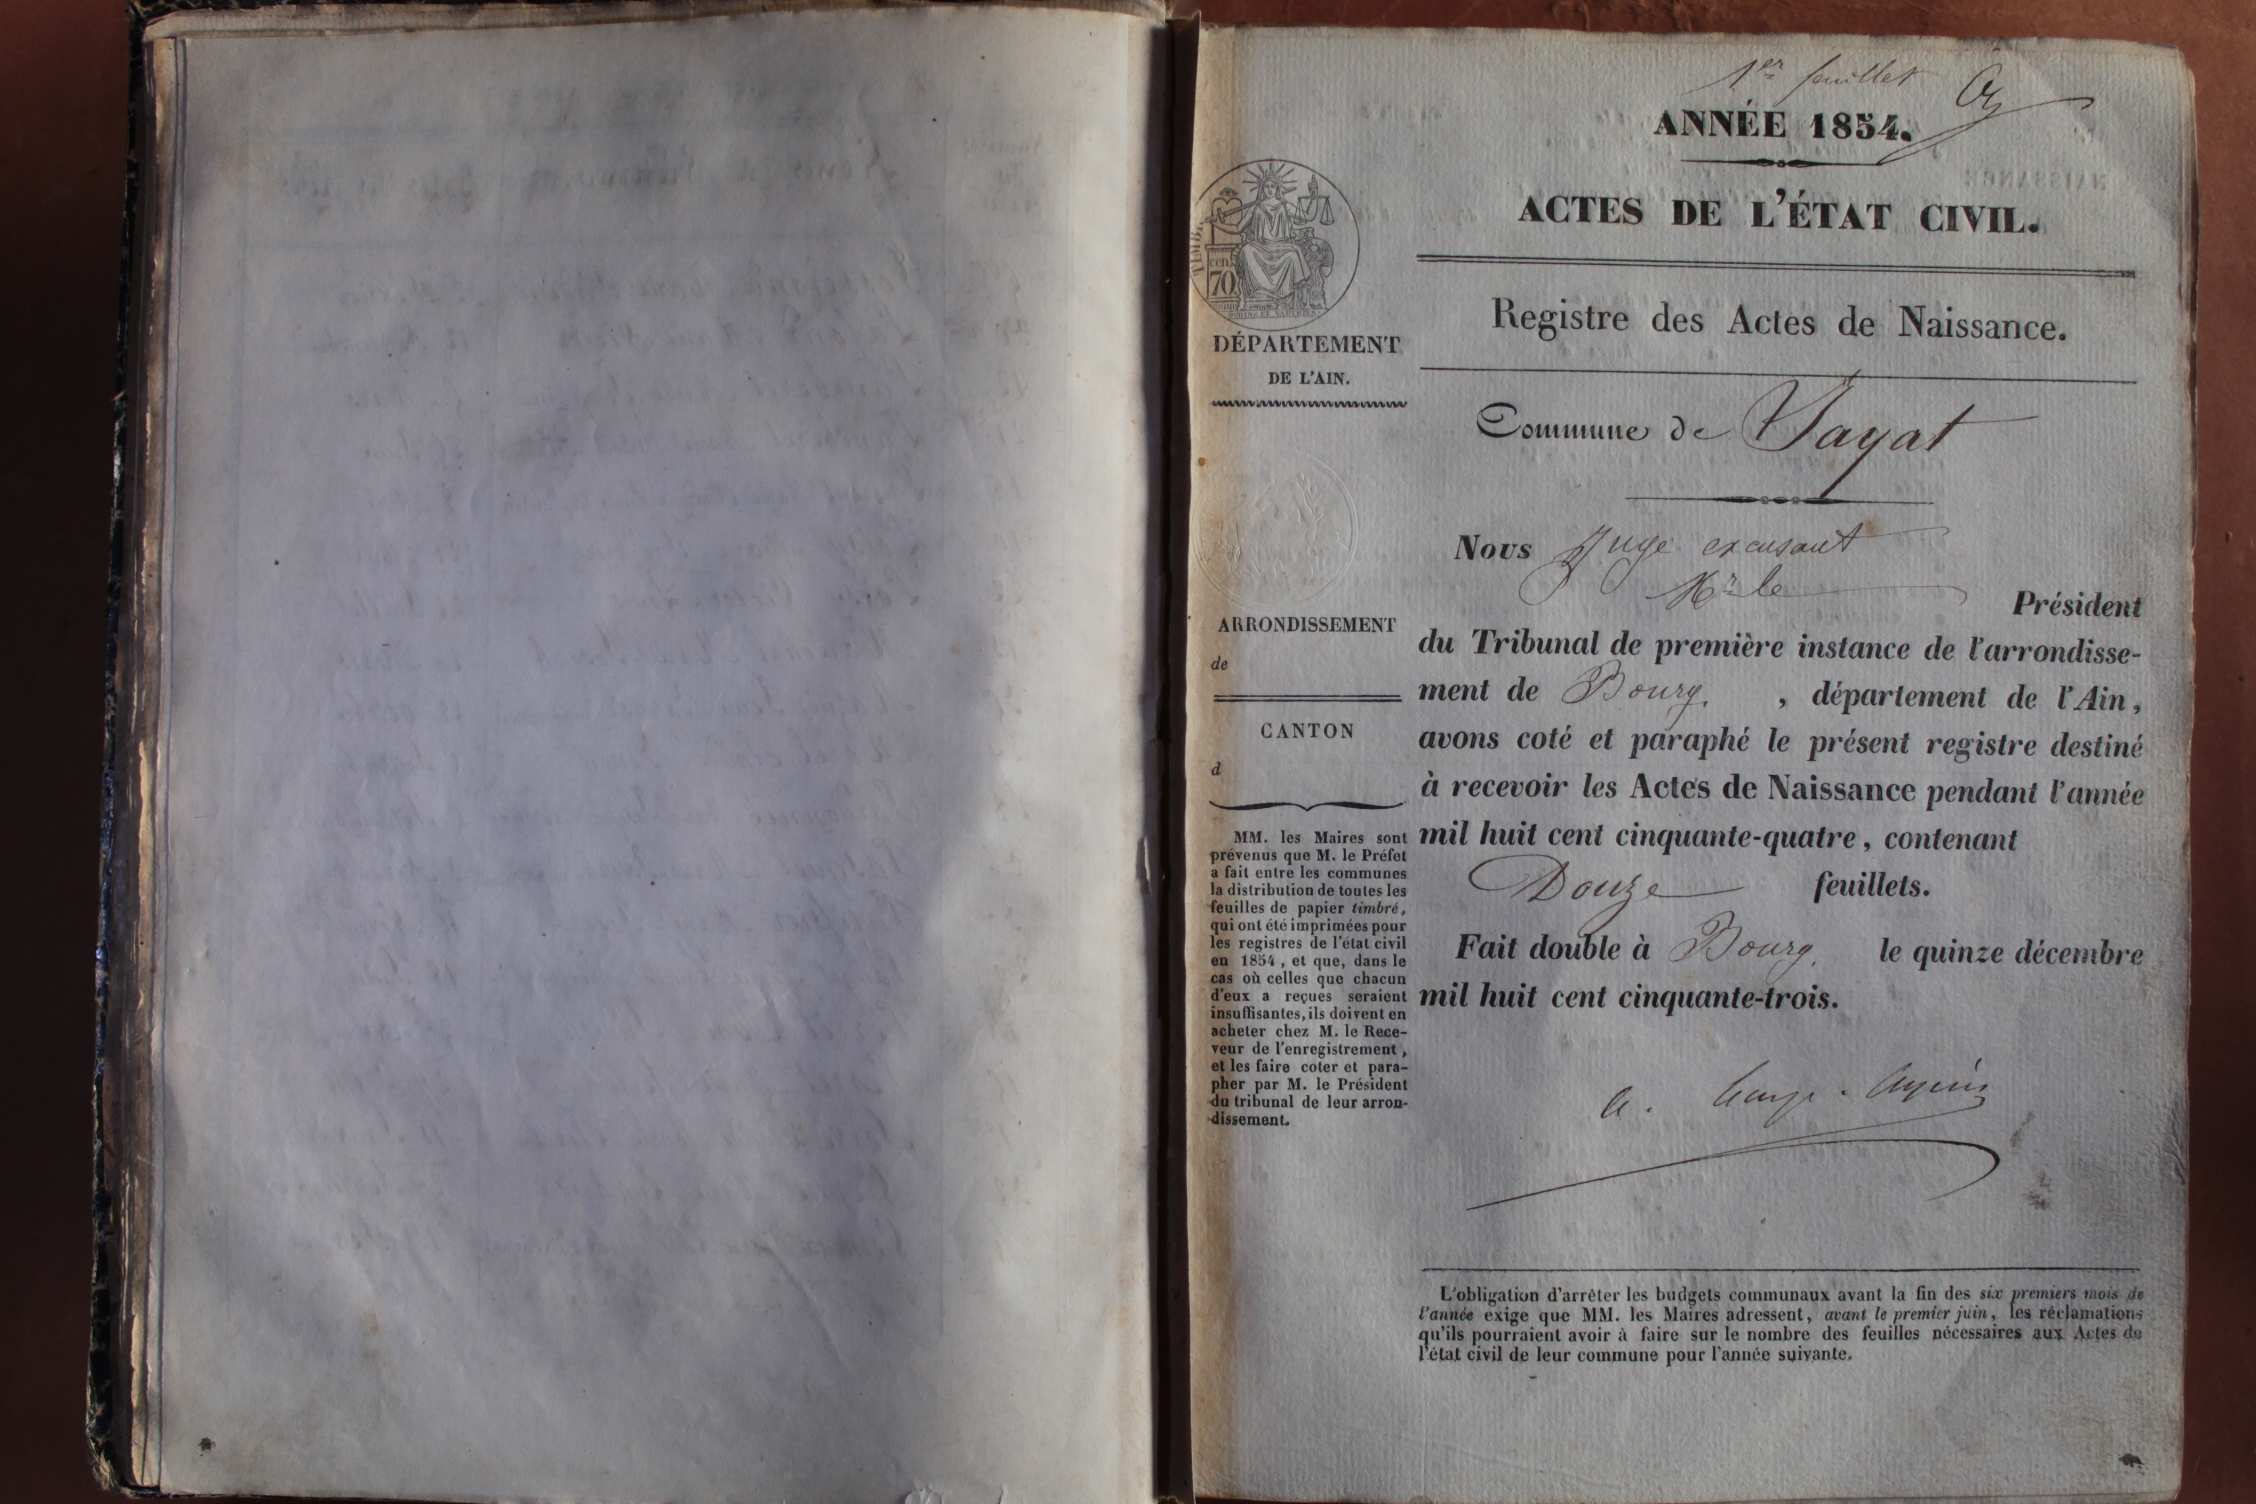 1er feuillet
ANNÉE 1854.
ACTES DE L'ÉTAT CIVIL.
Registre des Actes de Naissance.
TIMBR
cen.
70
DÉPARTEMENT
DE L'AIN.
Commune de Jayat
Nous Juge excusant
Mr le
Président
du Tribunal de première instance de l'arrondisse-
ment de Bourg. , département de l'Ain,
avons coté et paraphé le présent registre destiné
à recevoir les Actes de Naissance pendant l'année
mil huit cent cinquante-quatre, contenant
Douze feuillets.
Fait double à Bourg, le quinze décembre
mil huit cent cinquante-trois.
ARRONDISSEMENT
de
CANTON
d
MM. les Maires sont
prévenus que M. le Préfet
a fait entre les communes
la distribution de toutes les
feuilles de papier timbré,
qui ont été imprimées pour
les registres de l'état civil
en 1854, et que, dans le
cas où celles que chacun
d'eux a reçues seraient
insuffisantes, ils doivent en
acheter chez M. le Rece-
veur de l'enregistrement,
et les faire coter et para-
pher par M. le Président
du tribunal de leur arron-
dissement.
L'obligation d'arrêter les budgets communaux avant la fin des six premiers mois de
l'année exige que MM. les Maires adressent, avant le premier juin, les réclamations
qu'ils pourraient avoir à faire sur le nombre des feuilles nécessaires aux Actes de
l'état civil de leur commune pour l'année suivante.